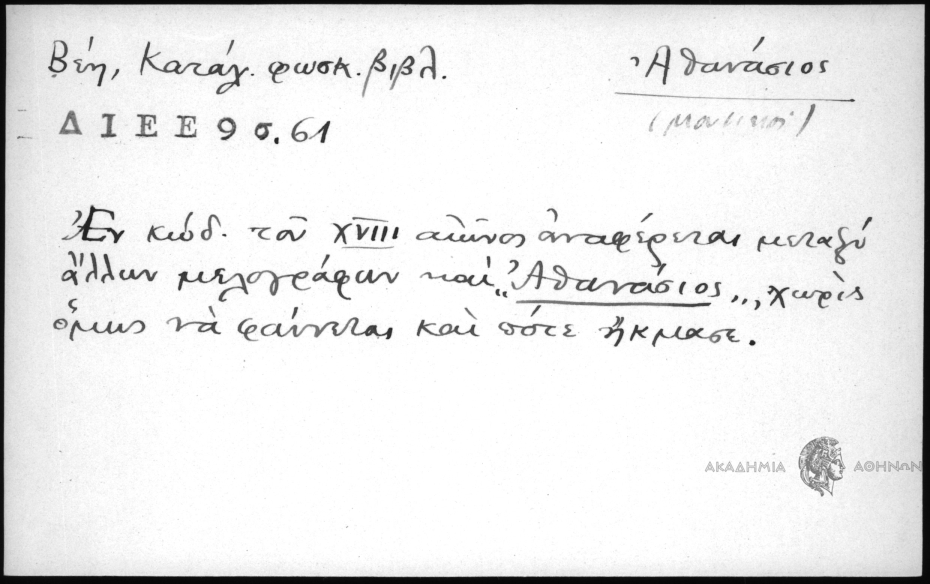 Βέη, Κατάλ. φωσκ. βιβλ.
Ἀθανάσιος
(μουσικός)
ΔΙΕΕ 9 σ. 61
Ἐν κώδ. τοῦ XVIII αἰῶνος ἀναφέρεται μεταξύ
ἄλλων μελογράφων καὶ „Ἀθανάσιος„, χωρὶς
ὅμως νὰ φαίνεται καὶ πότε ἤκμασε.
ΑΚΑΔΗΜΙΑ ΑΘΗΝΩΝ